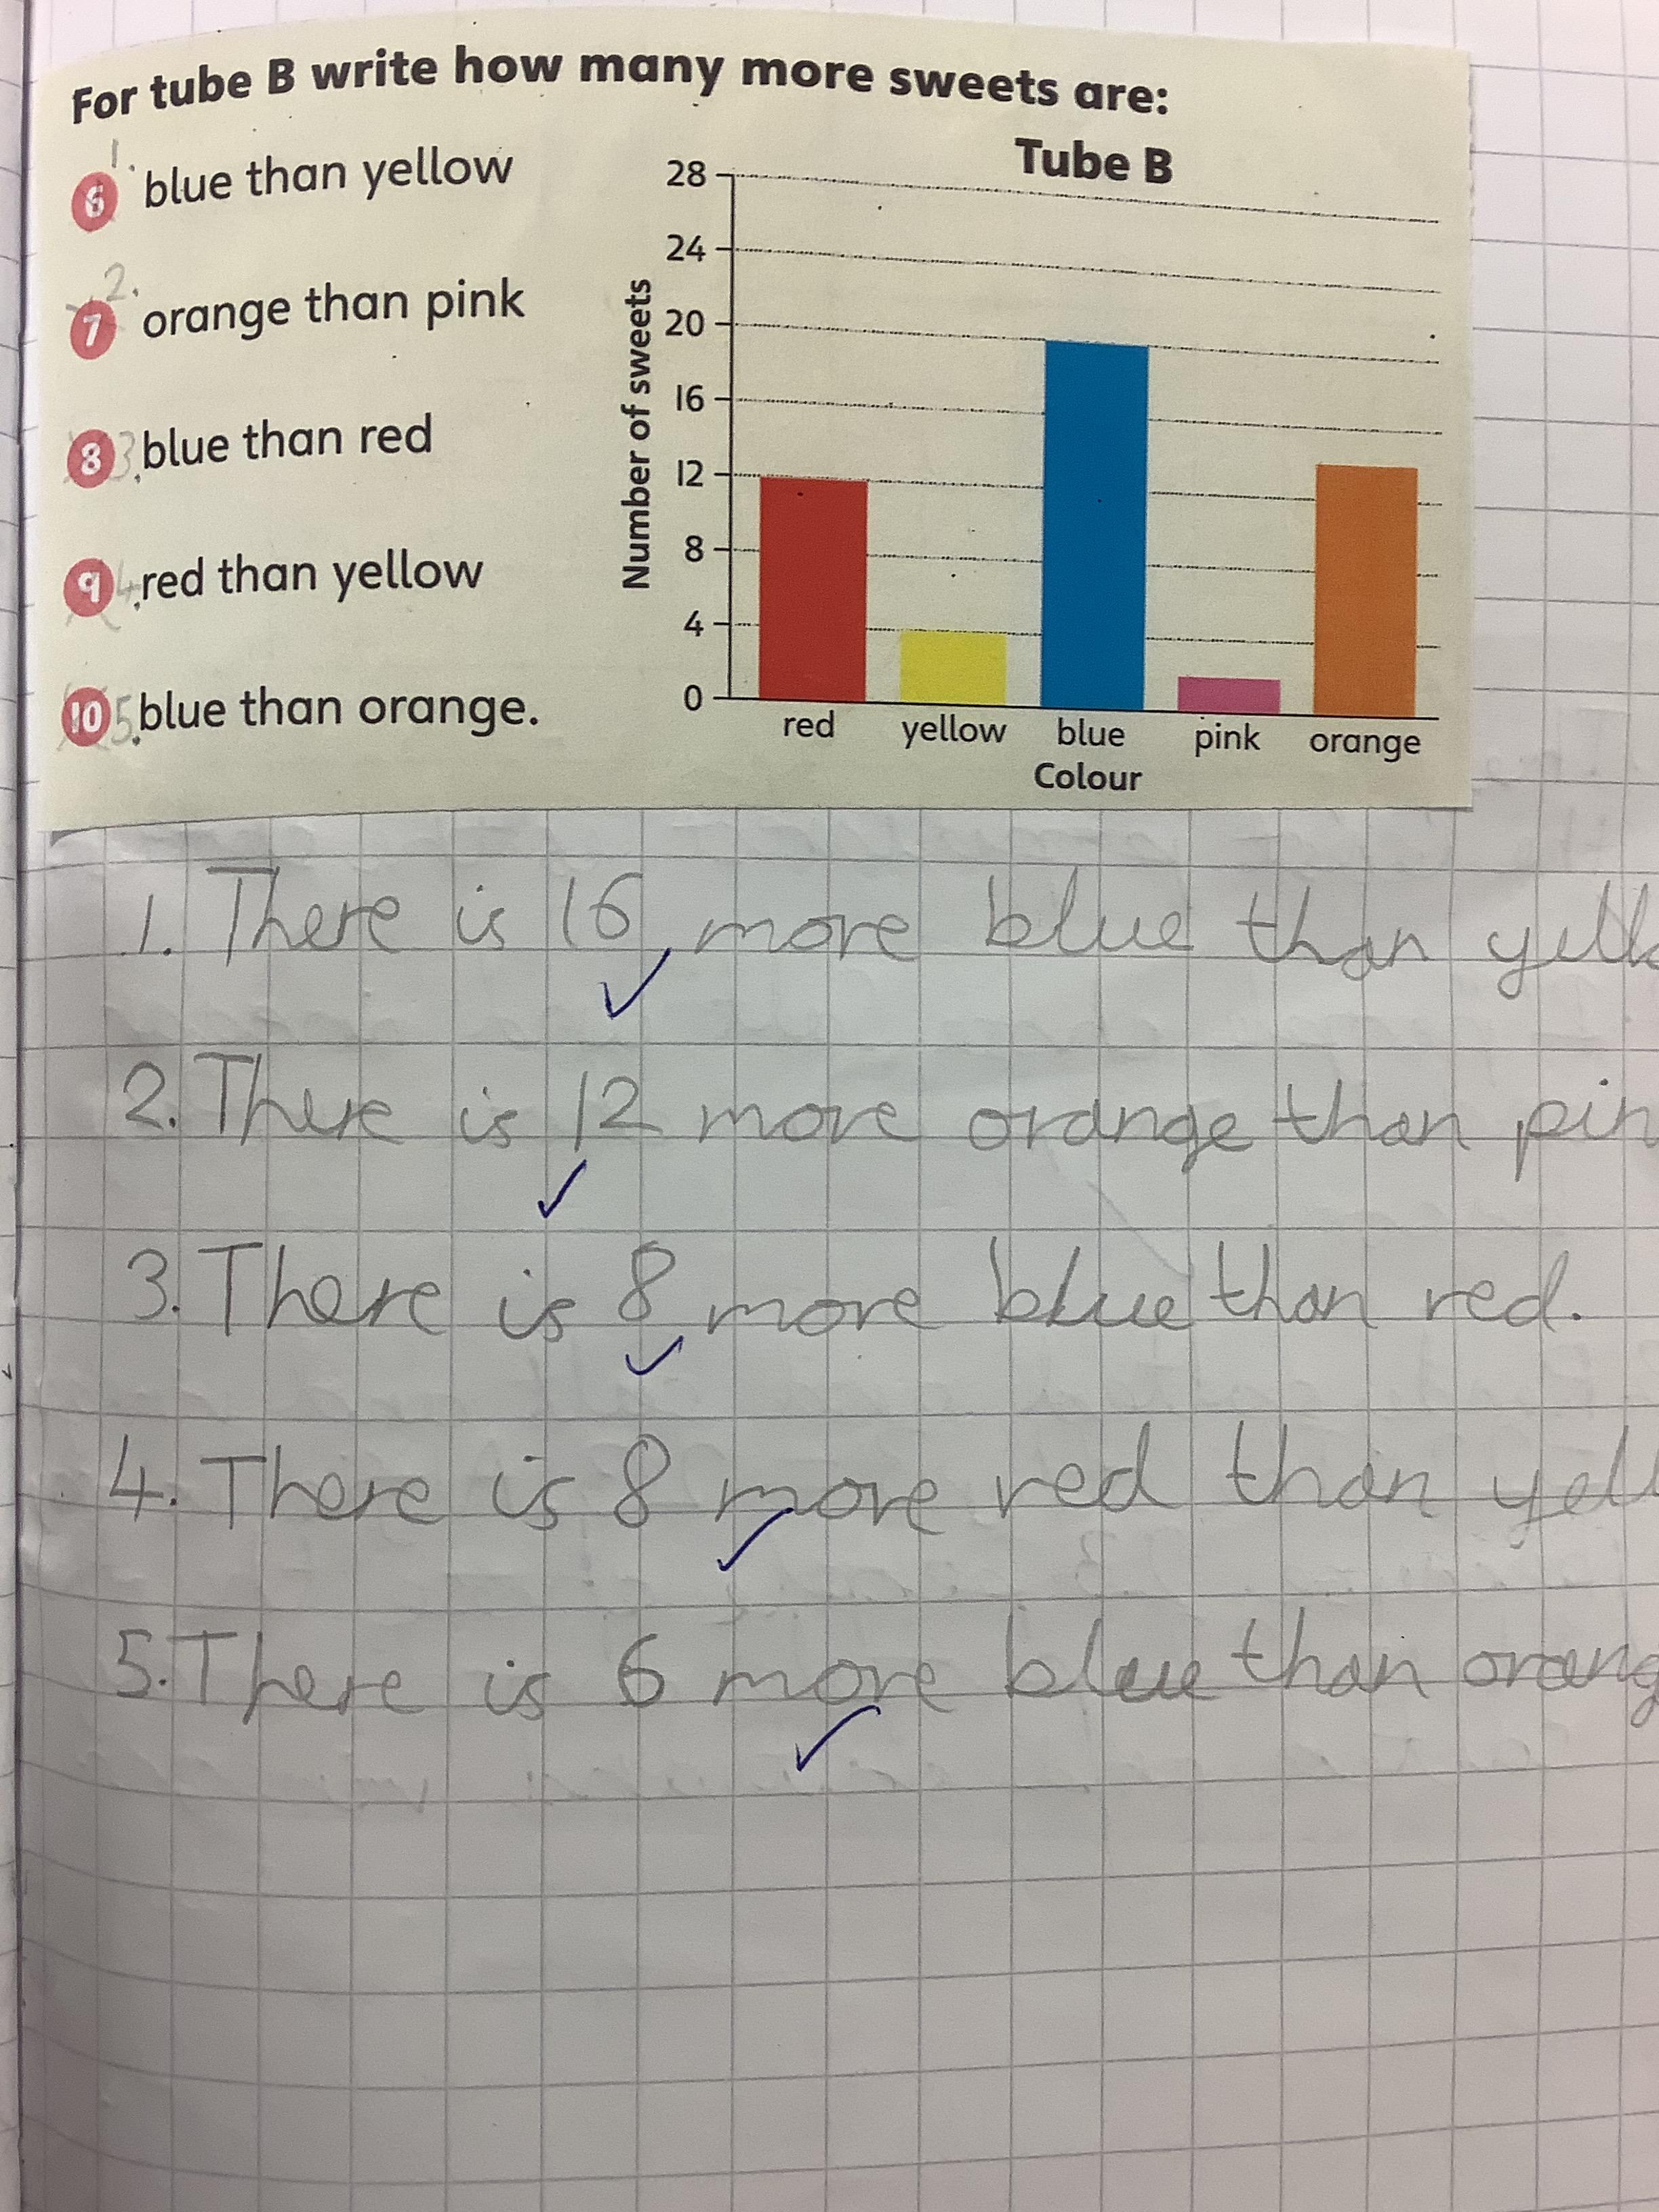 For tube B write how many more sweets are:
1.
6 blue than yellow
2.
7 orange than pink
8 3. blue than red
9 4. red than yellow
10 5. blue than orange.
Tube B
Number of sweets
28
24
20
16
12
8
4
0
red yellow blue pink orange
Colour
1. There is 16 more blue than yello
2. There is 12 more orange than pin
3. There is 8 more blue than red.
4. There is 8 more red than yell
5. There is 6 more blue than orang